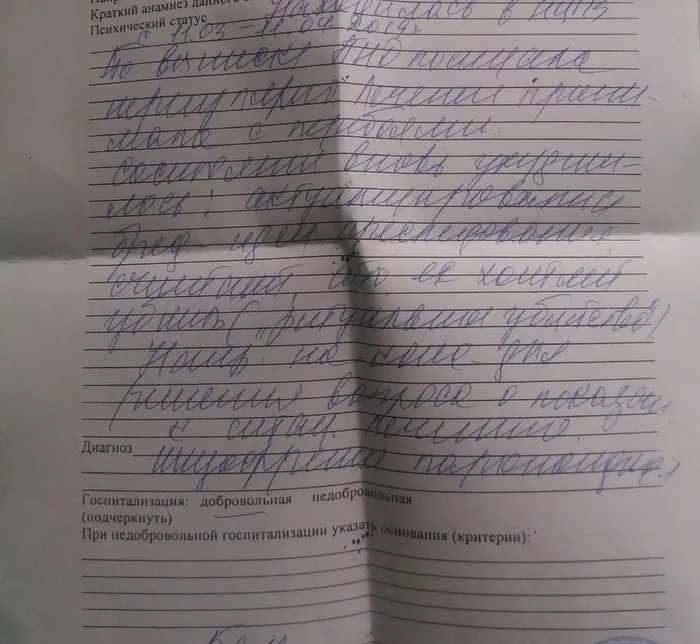 Краткий анамнез данного
Психический статус Находилась в НЦПЗ
с 11.03 – 11.04.2019г.
По выписке ПНД посещала
нерегулярно. Лечение прини-
мала с перебоями.
Состояние вновь ухудши-
лось: актуализировались
бред. идеи преследования,
считает, что ее хотят
убить ("ритуальное убийство")
Напр. на для
решения вопроса о показан
к стац. лечению.
Диагноз шизофрения параноидная
Госпитализация: добровольная недобровольная
(подчеркнуть)
При недобровольной госпитализации указать основания (критерии):